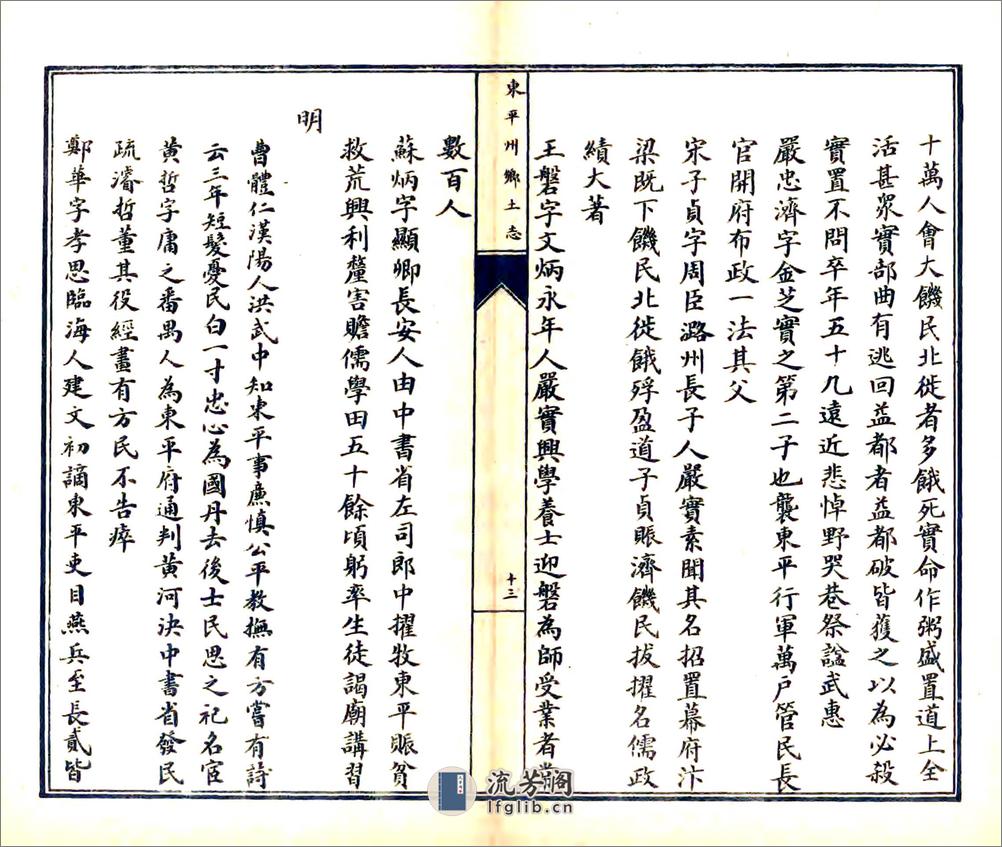 十萬人會大饑民北徙者多餓死實命作粥盛置道上全
活甚衆實部曲有逃回益都者益都破皆獲之以為必殺
實置不問卒年五十九遠近悲悼野哭巷祭諡武惠
嚴忠濟字金芝實之第二子也襲東平行軍萬戶管民長
官開府布政一法其父
宋子貞字周臣潞州長子人嚴實素聞其名招置幕府汴
梁既下饑民北徙餓殍盈道子貞賑濟饑民拔擢名儒政
績大著
王磐字文炳永年人嚴實興學養士迎磐為師受業者常
東平州鄉土志
十三
數百人
蘇炳字顯卿長安人由中書省左司郎中擢牧東平賑貧
救荒興利釐害贍儒學田五十餘頃躬率生徒謁廟講習
明
曹體仁漢陽人洪武中知東平事廉慎公平教撫有方嘗有詩
云三年短髮憂民白一寸忠心為國丹去後士民思之祀名宦
黃哲字庸之番禺人為東平府通判黃河決中書省發民
疏濬哲董其役經畫有方民不告瘁
鄭華字孝思臨海人建文初謫東平吏目燕兵至長貳皆
流芳閣
lfglib.cn